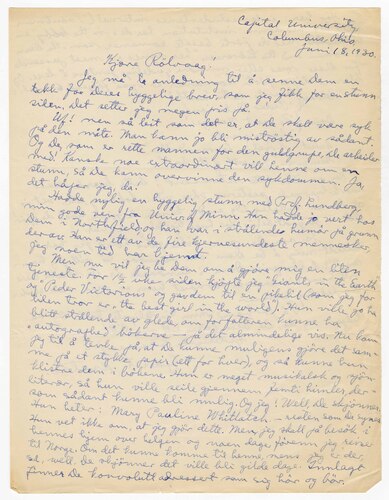 Capital University,
Columbus, Ohio,
Juni 18, 1930.
Kjære Rölvaag!
Jeg må ta anledning til å sende Dem en
takk for deres hyggelige brev, som jeg fikk for en stund
siden, det setter jeg megen pris på.
Uf! men så leit som det er, at De skal være syk
på den måte. Man kann jo bli mistrøstig av sådant.
Og De som er rette mannen for den guldgrube, De arbeider
med kanske noe extraordinært vill hende om en
stund, så De kann overvinne den sykdommen. Ja,
det håper jeg da!
Hadde nylig en hyggelig stund med Prof. Lundberg,
min gode ven fra Univ. of Minn. Han hadde jo vert hos
Dem i Northfield og han var i strålende humør på grunn
derav. Han er ett av de fire kjernesundeste mennesker,
jeg noen tid har kjennt.
Men nu vil jeg be Dem om å gjøre mig en liten
tjeneste. For 1½ uke siden kjøpte jeg "Giants in the Earth"
og "Peder Victorious" og gav dem til en pike (som jeg for
tiden tror er the best girl in the world). Hun ville jo ha
blitt strålende av glede, om forfatteren kunne ha
"autographed" bøkerne på det almindelige vis. Nu kom
jeg til å tenke på, at De kunne muligens gjøre det sam-
me på et stykke papir (ett for hver), og så kunne hun
klistre dem i bøkerne. Hun er meget musikalsk og
litterær, så hun ville seile gjennem femti himler, der-
som sådant kunne bli mulig. Og jeg! Well De skjønner.
Hun heter: Mary Pauline Whitleich
Hun vet ikke om at jeg gjør dette. Men jeg skal på besøk i
hennes hjem over helgen og noen dage, førenn jeg reiser
til Norge. Om det kunne komme til henne, mens jeg er der
så, well, De skjønner det ville bli gilde dage. Innlagt
finner De konvolutt adressert som sig hør og bør.